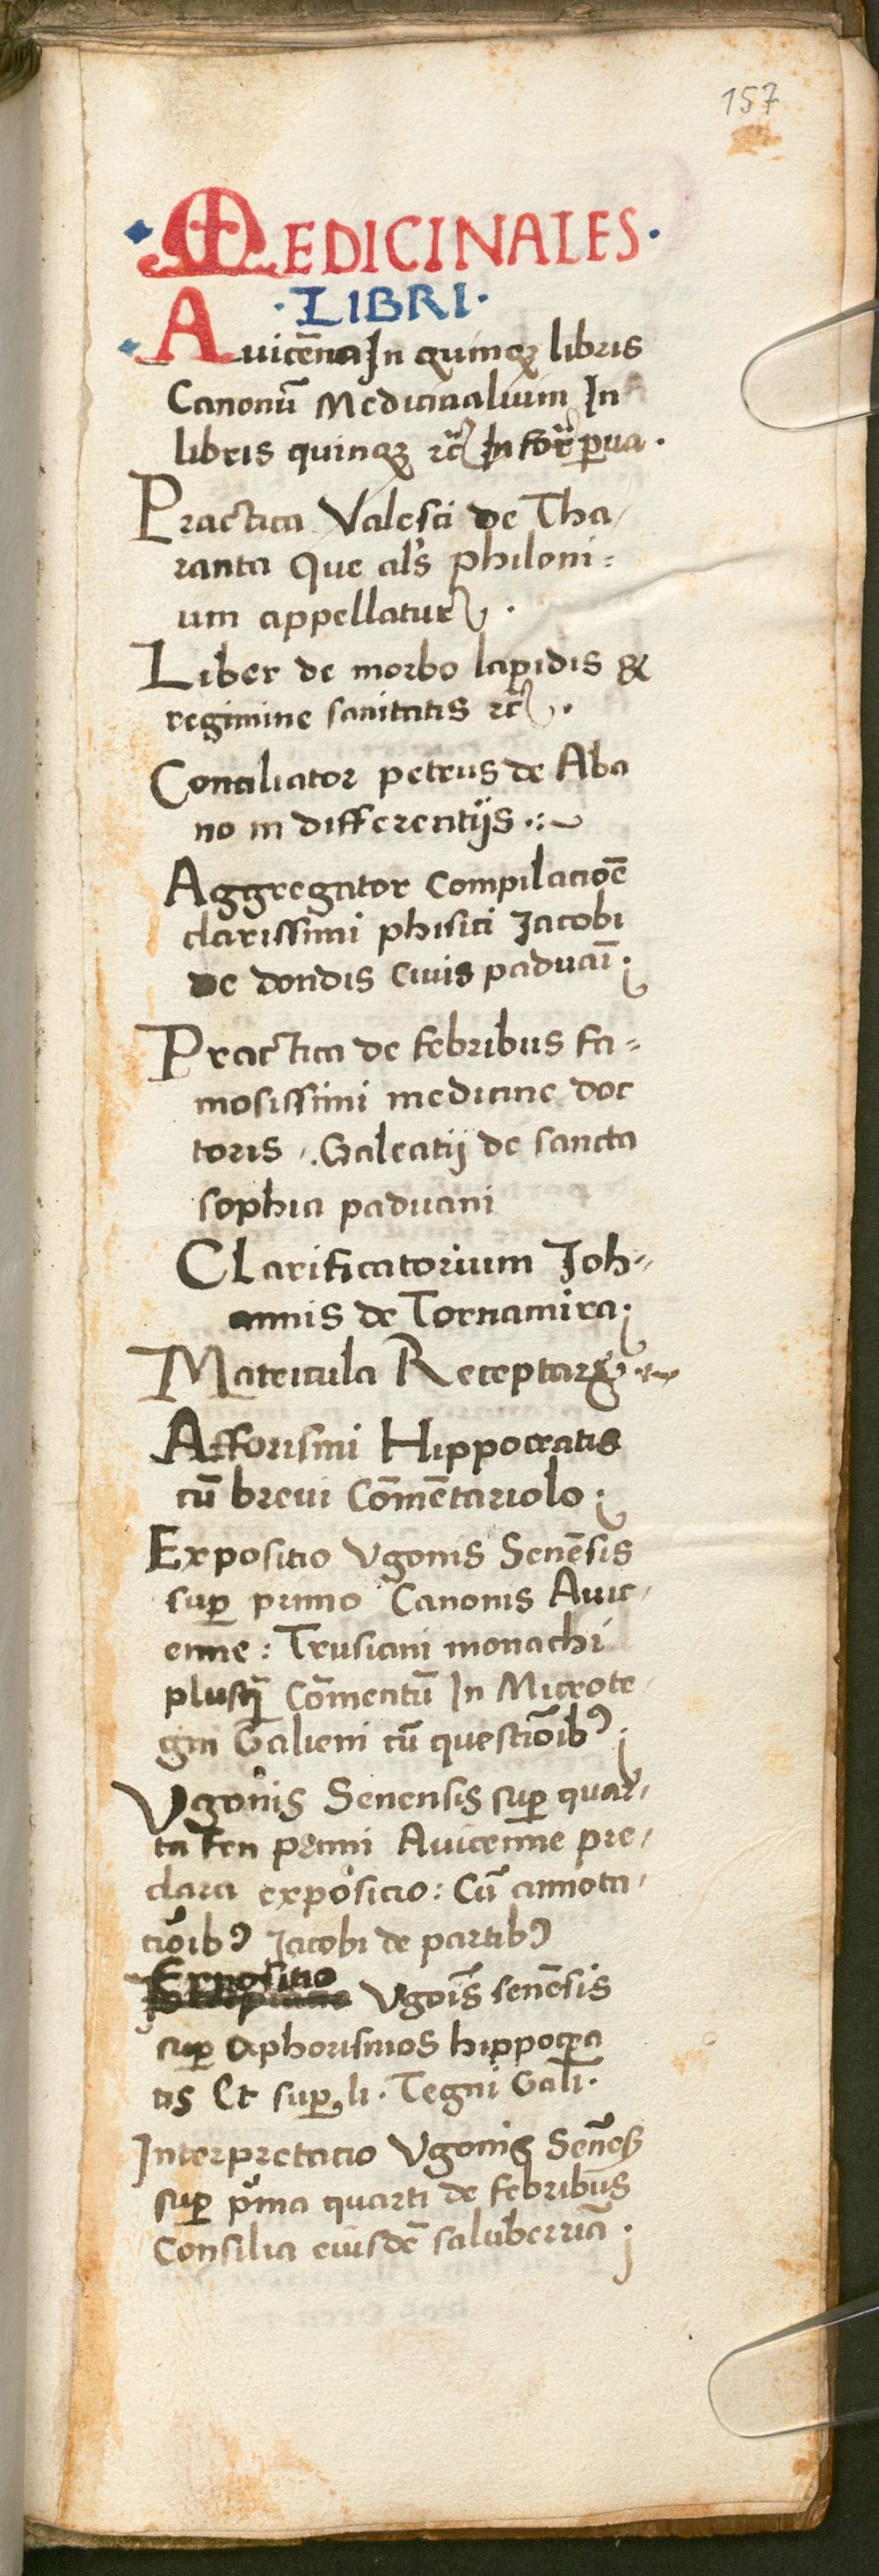 157
MEDICINALES.
.LIBRI.
Auicēna In quinqꝫ libris
Canonū Medicinalium In
libris quinqꝫ ꝛc̄ In for̄ ꝑua.
Practica Valesci de Tha/
ranta Que als philoni=
um appellatur.
Liber de morbo lapidis &
regimine sanitatis ꝛc̄.
Conciliator petrus de Aba
no in differentijs .:~
Aggregator Compilacioē
clarissimi phisici Jacobi
de dondis Ciuis paduaī.;
Practica de febribus fa=
mosissimi medicine doc
toris . Galeatij de sancta
sophia paduani
Clarificatorium Joh=
annis de Tornamira;
Matricula Receptarꝝ.~
Afforismi Hippocratis
cū breui Cōmētariolo;
Expositio Vgonis Senēsis
suꝑ primo Canonis Auic/
enne : Trusiani monachi
plusꝙ̄ Cōmentū In Microte/
gni Galieni cū questiōibꝰ;
Vgonis Senensis suꝑ quar/
ta fen primi Auicenne pre/
clara expositio : Cū annota/
ciōibꝰ Jacobi de partibꝰ
Expositio
Vgoīs senēsis
suꝑ aphorismos hippocra
tis Et suꝑ li. Tegni Gali.
Interpretatio Vgonis Senēs̄
suꝑ pͥma quarti de febribus
Consilia eiusdē saluberriā.;